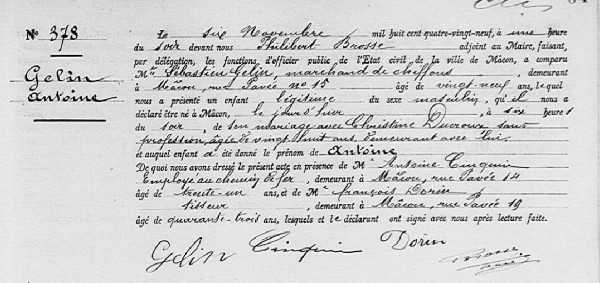 N° 378
Gelin
Antoine
Le six Novembre mil huit cent quatre-vingt-neuf, à une heure
du soir devant nous Philibert Brosse adjoint au Maire, faisant,
par délégation, les fonctions d'officier public de l'Etat civil de la ville de Mâcon, a comparu
Mr Sébastien Gelin, marchand de chiffons, demeurant
à Mâcon, rue Pavée n° 15 âgé de vingt-neuf ans, lequel
nous a présenté un enfant légitime du sexe masculin, qu'il nous a
déclaré être né à Mâcon, le jour d'hier à six heures
du soir, de son mariage avec Christine Ducroux sans
profession, âgée de vingt-huit ans, demeurant avec lui.
et auquel enfant a été donné le prénom de Antoine
De quoi nous avons dressé le présent acte en présence de Mr Antoine Cinquin
Employé au chemin de fer, demeurant à Mâcon, rue Pavée 14
âgé de trente-un ans, et de Mr françois Dorin
tisseur, demeurant à Mâcon, rue Pavée 19
âgé de quarante-trois ans, lesquels et le déclarant ont signé avec nous après lecture faite.
Gelin Cinquin Dorin Brosse